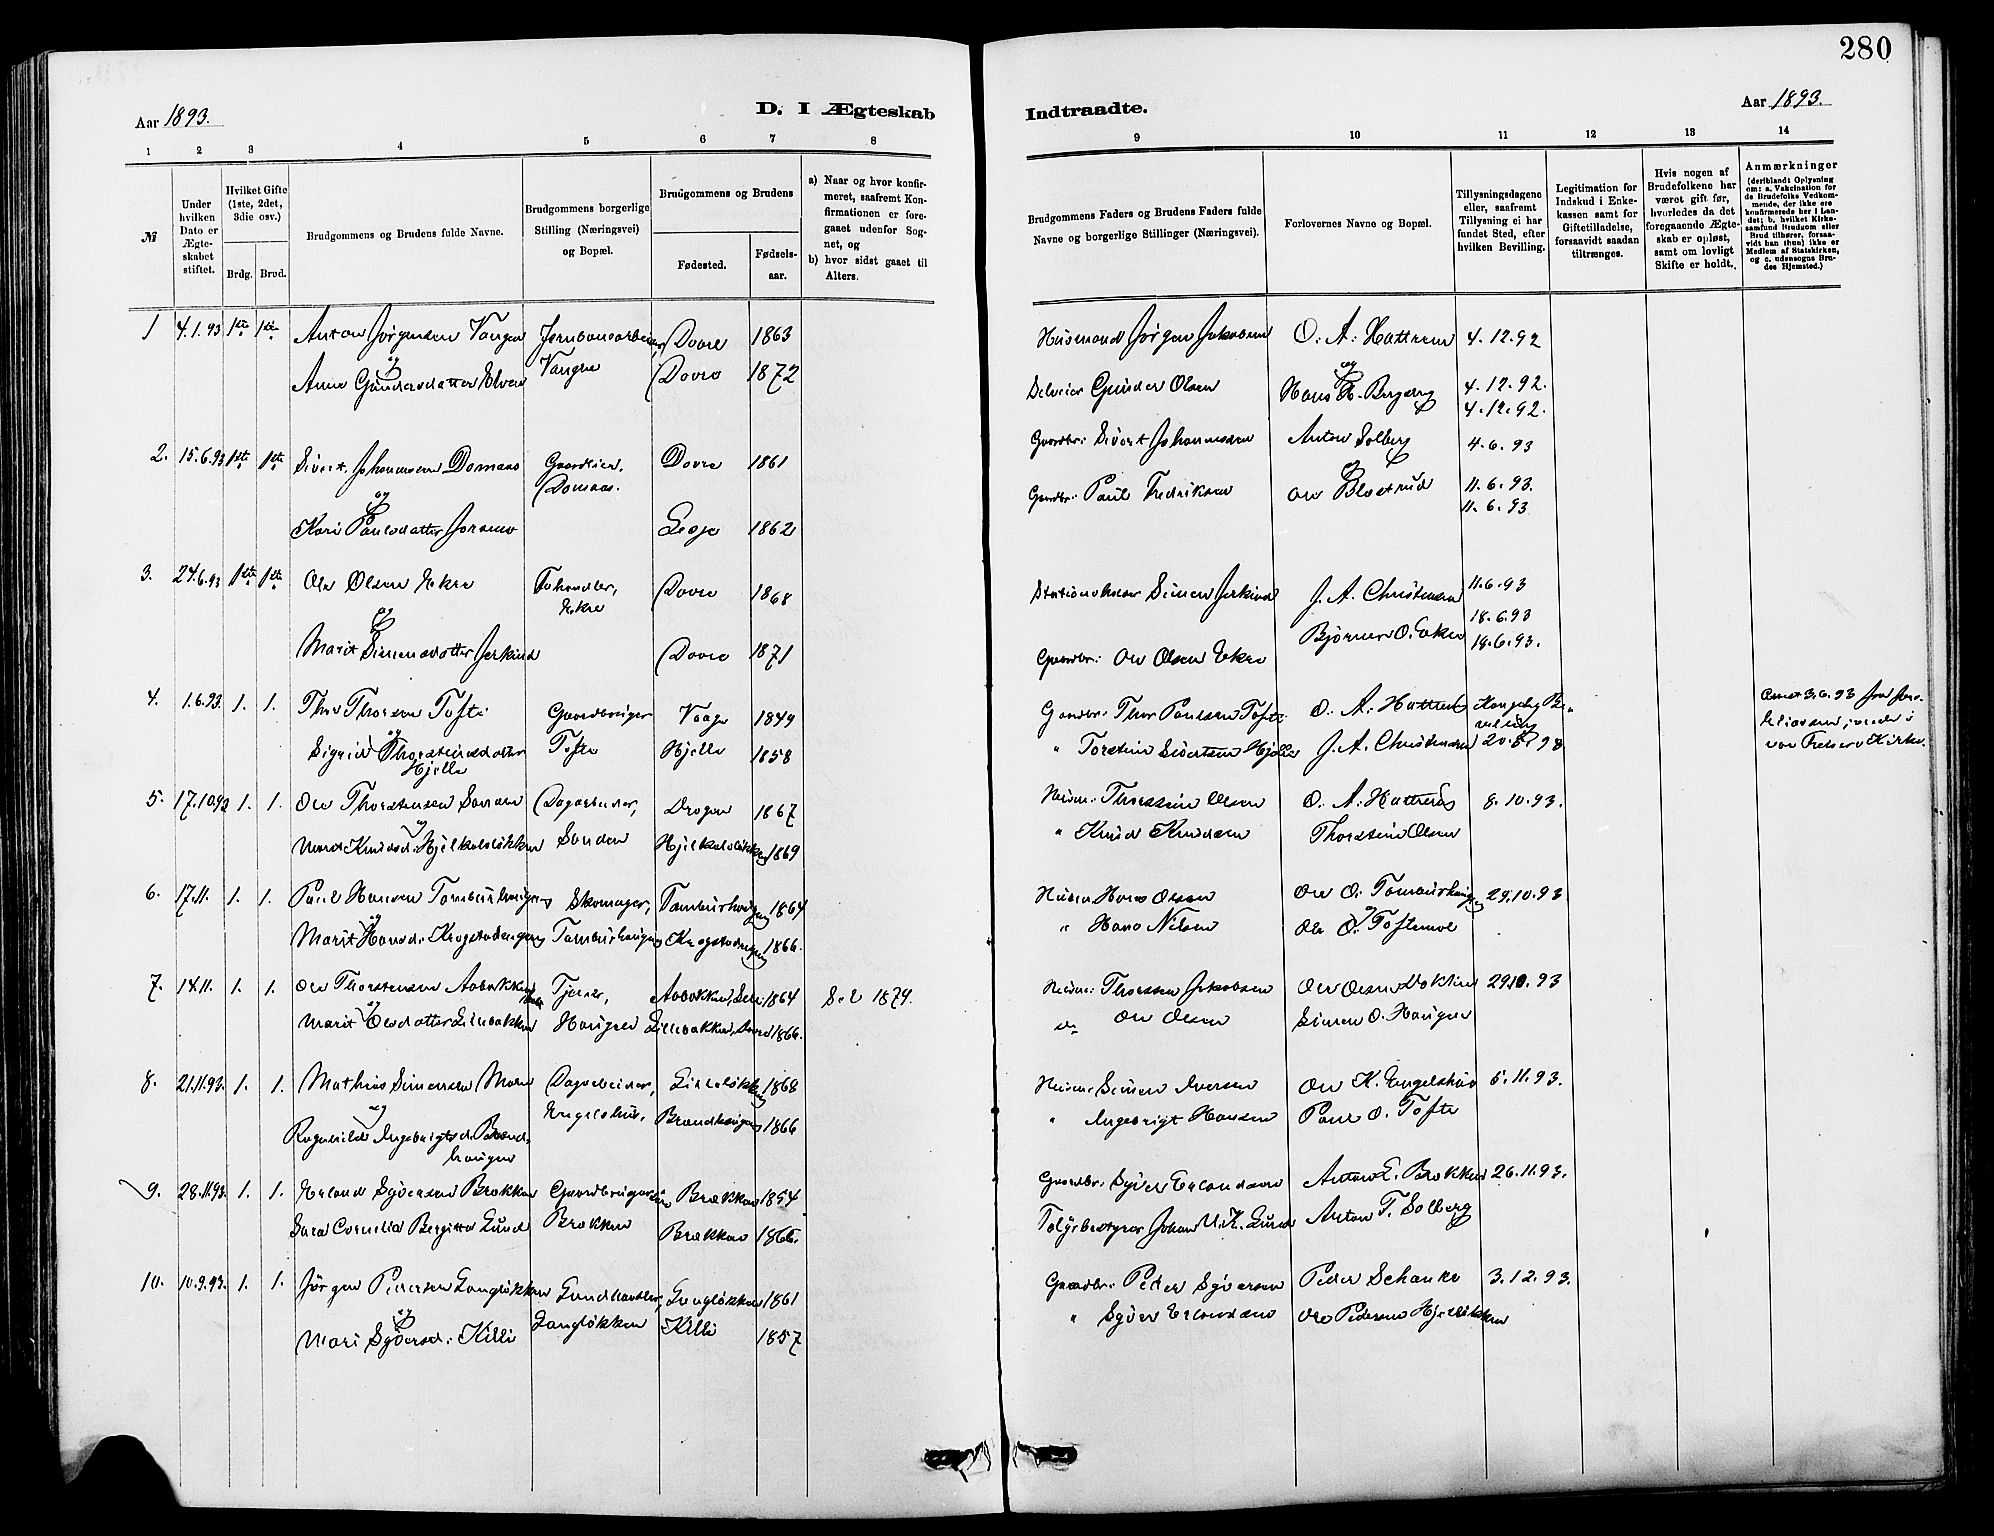 280
Aar 1893.
D. I Ægteskab
Indtraadte.
Aar 1893.
1 2 3 4 5 6 7 8
9 10 11 12 13 14
№
Under hvilken Dato er Ægteskabet stiftet.
Hvilket Gifte (1ste, 2det, 3die osv.)
Brdg. Brud.
Brudgommens og Brudens fulde Navne.
Brudgommens borgerlige Stilling (Næringsvei) og Bopæl.
Brudgommens og Brudens
Fødested. Fødselsaar.
a) Naar og hvor konfirmeret, saafremt Konfirmationen er foregaaet udenfor Sognet, og
b) hvor sidst gaaet til Alters.
Brudgommens Faders og Brudens Faders fulde Navne og borgerlige Stillinger (Næringsvei).
Forlovernes Navne og Bopæl.
Tillysningsdagene eller, saafremt Tillysning ei har fundet Sted, efter hvilken Bevilling.
Legitimation for Indskud i Enkekassen samt for Giftetilladelse, forsaavidt saadan tiltrænges.
Hvis nogen af Brudefolkene har været gift før, hvorledes da det foregaaende Ægteskab er opløst, samt om lovligt Skifte er holdt.
Anmærkninger
(deriblandt Oplysning om: a. Vakcination for de Brudefolks Vedkommende, der ikke ere konfirmerede her i Landet; b. hvilket Kirkesamfund Brudgom eller Brud tilhører, forsaavidt han (hun) ikke er Medlem af Statskirken, og c. udensogns Brudes Hjemsted.)
1 4.1.93 1ste 1ste Anton Jørgensen Vangen Jernbanearbeider, Dovre 1863 Husmand Jørgen Jakobsen O. A. Hattrem 4.12.92
og Vangen og
Anne Gundersdatter Elven Dovre 1872 Selveier Gunder Olsen Hans H. Bergseng 4.12.92.
4.12.92.
2. 15.6.93 1ste 1ste Sivert Johannesen Domaas Gaardeier, Dovre 1861 Gaardbr: Sivert Johannesen Anton Solberg 4.6.93
og Domaas. og
Kari Paulsdatter Joramo Lesje 1862 Gaardbr: Paul Fredriksen Ole Blestrud 11.6.93.
11.6.93
3. 24.6.93 1ste 1ste Ole Olsen Ekre Dovre 1868 Simen Jerkind J. A. Christensen 11.6.93
og Ekre 18.6.93
Marit Simensdatter Jerkind Dovre 1871 Gaardbr: Ole Olsen Ekre Bjørner O. Ekre 18.6.93.
4. 1.6.93. 1. 1. Thor Thorsen Tofte Gaardbruger Vaage 1849 Gaardbr: Thor Paulsen Tofte O. A. Hattrem Kongelig Be-
og Tofte villing
Sigrid Thorsteinsdatter Hjelle Hjelle 1858 " Torstein Sivertsen Hjelle J. A. Christensen
5. 17.10.93 1. 1. Ole Thorstensen Sonden Dagarbeider, 1867 Husm: Thorstein Olsen O. A. Hattrem 8.10.93.
og
Marit Knudsd: Hjelkelsløkken Sonden Hjelkelsløkken 1869 " Knud Knudsen Thorstein Olsen
6. 17.11. 1. 1. Paul Hansen Tamburhaugen Skomager, Tamburhaugen 1864 Husm Hans Olsen Ole O. Tamburhaugen 29.10.93.
og
Marit Hansd: Krogstadengen Tamburhaugen Krogstadengen 1866. " Hans Nilsen Ole O. Toftemoe
7. 14.11. 1. 1. Ole Thorstensen Aabakken Tjener, Aabakken, Sel 1864 Sel 1879. Husm: Thorsten Jakobsen Ole Olsen Dokken 29.10.93
og
Marit Olsdatter Lillebakken Haugen Lillebakken, Dovre 1866. Ole Olsen Simen O. Haugen
8. 21.11.93. 1. 1. Mathias Simensen Moen Dagarbeider, 1868 Husm: Simen Iversen Ole K. Engelshus 5.11.93.
og Engelshus,
Ragnhild Ingebrigtsd. Brandhaugen Brandhaugen 1866 " Ingebrigt Hansen Paul O. Tofte
9. 28.11.93. 1. 1. Erland Syversen Brækken Gaardbruger Brækken 1854 Gaardbr: Syver Erlandsen Anton E. Brækken 26.11.93.
Sara Cornelia Bergitte Lund Brækken Brækken 1866. Johan Lund Anton T. Solberg
10. 10.9.93. 1. 1. Jørgen Pedersen Langløkken Landhandler, Langløkken 1861 Gaardbr: Peder Syversen Peder Schanke 3.12.93.
og Langløkken
Mari Syversd: Killi Killi 1857 " Syver Erlandsen Ole Pedersen Hjelløkken